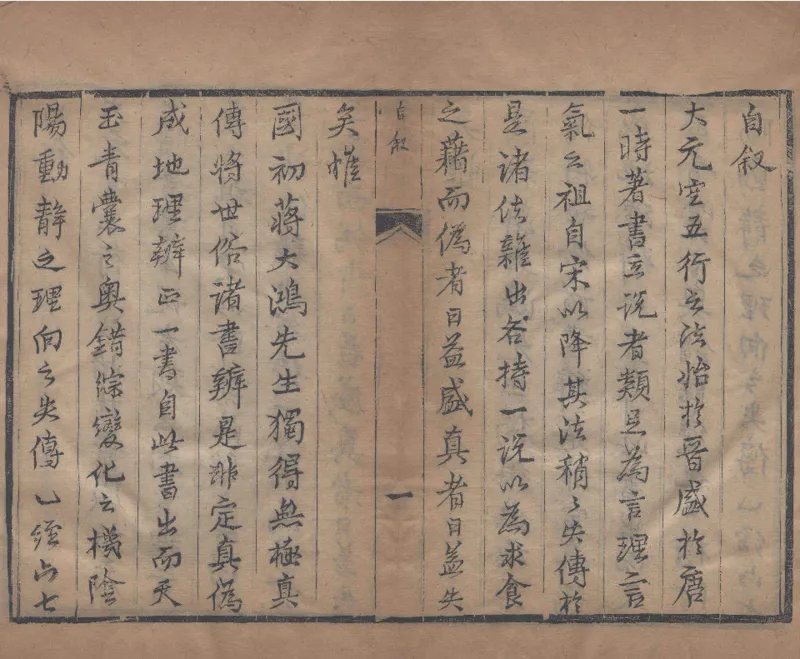 自叙
大元空五行之法始於晉盛於唐
一時著書立說者類足為言理言
氣之祖自宋以降其法稍〻失傳於
是諸法雜出各持一說以為求食
之藉而偽者日益盛真者日益失
自叙
一
矣惟
國初蔣大鴻先生獨得無極真
傳將世俗諸書辨是非定真偽
成地理辨正一書自此書出而天
玉青囊之奧錯綜變化之機陰
陽動靜之理向之失傳
七